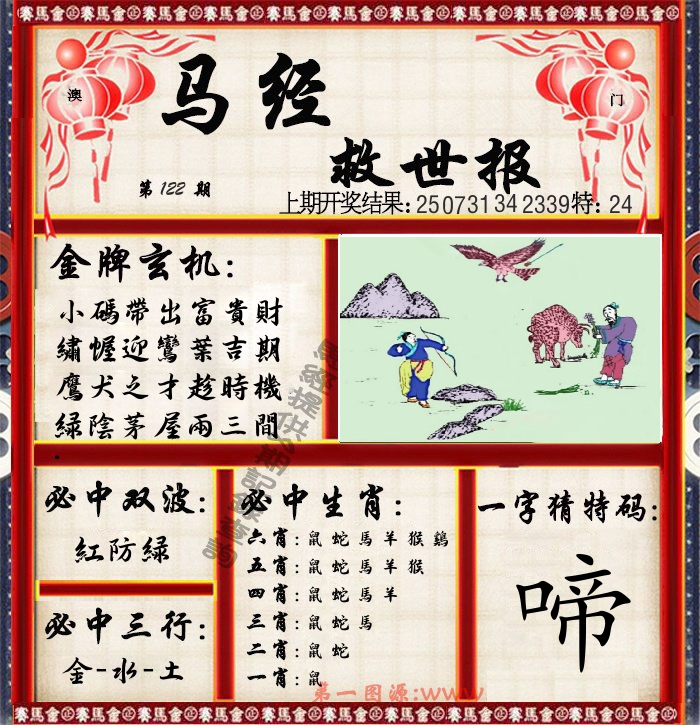 賽馬會
澳
门
马经
救世报
第 122 期
上期开奖结果:25 07 31 34 23 39 特: 24
金牌玄机:
小碼帶出富貴財
繡幄迎鸞葉吉期
鷹犬之才趁時機
緑陰茅屋兩三間
必中双波:
紅防緑
必中三行:
金-水-土
必中生肖:
六肖:鼠蛇馬羊猴鷄
五肖:鼠蛇馬羊猴
四肖:鼠蛇馬羊
三肖:鼠蛇馬
二肖:鼠蛇
一肖:鼠
一字猜特码:
啼
第一图源:www